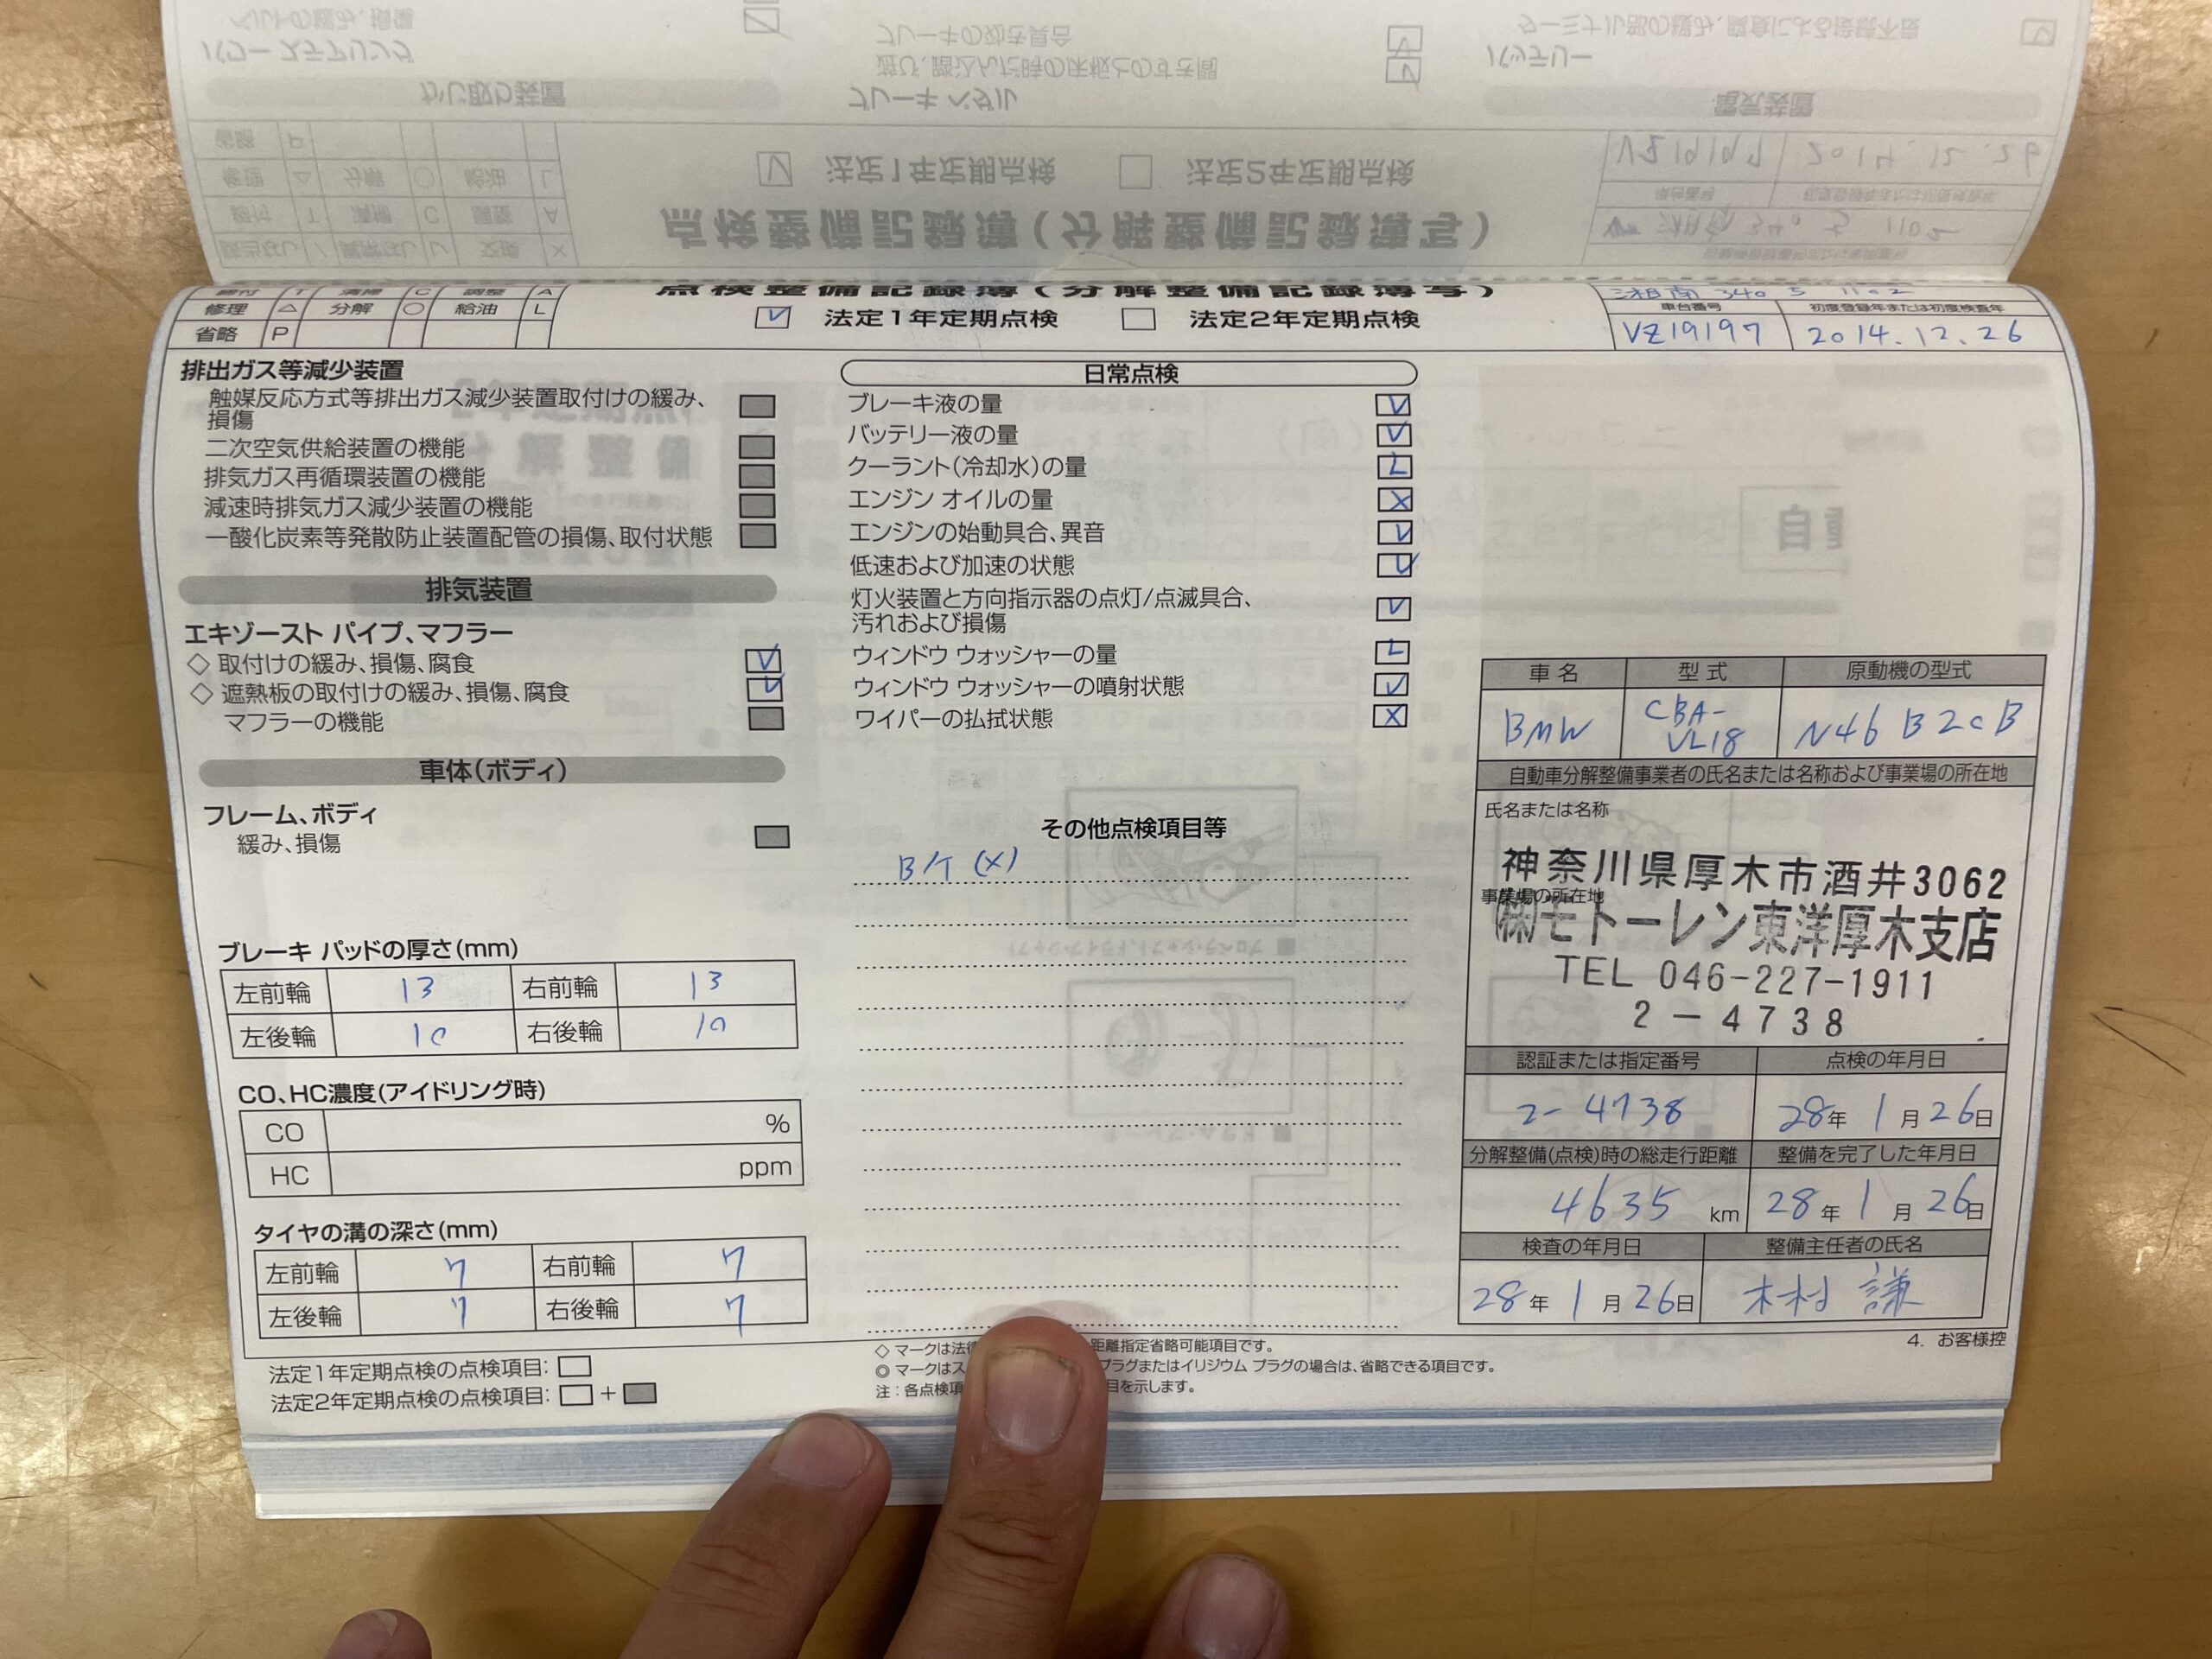 締付 T 清掃 C 調整 A
修理 △ 分解 ○ 給油 L
省略 P
点検整備記録簿(分解整備記録簿写)
☑ 法定1年定期点検 □ 法定2年定期点検
湘南 340 1102
車台番号 初度登録年または初度検査年
VZ19197 2014.12.26
排出ガス等減少装置
触媒反応方式等排出ガス減少装置取付けの緩み、
損傷
二次空気供給装置の機能
排気ガス再循環装置の機能
減速時排気ガス減少装置の機能
一酸化炭素等発散防止装置配管の損傷、取付状態
排気装置
エキゾースト パイプ、マフラー
◇ 取付けの緩み、損傷、腐食 V
◇ 遮熱板の取付けの緩み、損傷、腐食 V
マフラーの機能
車体(ボディ)
フレーム、ボディ
緩み、損傷
ブレーキ パッドの厚さ(mm)
左前輪 13 右前輪 13
左後輪 10 右後輪 10
CO、HC濃度(アイドリング時)
CO %
HC ppm
タイヤの溝の深さ(mm)
左前輪 7 右前輪 7
左後輪 7 右後輪 7
法定1年定期点検の点検項目: □
法定2年定期点検の点検項目: □ + ■
日常点検
ブレーキ液の量 V
バッテリー液の量 V
クーラント(冷却水)の量 L
エンジン オイルの量 X
エンジンの始動具合、異音 V
低速および加速の状態 V
灯火装置と方向指示器の点灯/点滅具合、
汚れおよび損傷 V
ウィンドウ ウォッシャーの量 L
ウィンドウ ウォッシャーの噴射状態 V
ワイパーの払拭状態 X
その他点検項目等
(X)
◇ マークは法 距離指定省略可能項目です。
◎ マークはス プラグまたはイリジウム プラグの場合は、省略できる項目です。
注:各点検項 目を示します。
車名 型式 原動機の型式
BMW CBA-VL18 N46 B20B
自動車分解整備事業者の氏名または名称および事業場の所在地
氏名または名称
神奈川県厚木市酒井3062
事業場の所在地
㈱モトーレン東洋厚木支店
TEL 046-227-1911
2-4738
認証または指定番号 点検の年月日
2-4738 28年 1月 26日
分解整備(点検)時の総走行距離 整備を完了した年月日
4635 km 28年 1月 26日
検査の年月日 整備主任者の氏名
28年 1月 26日 木村 謙
4. お客様控